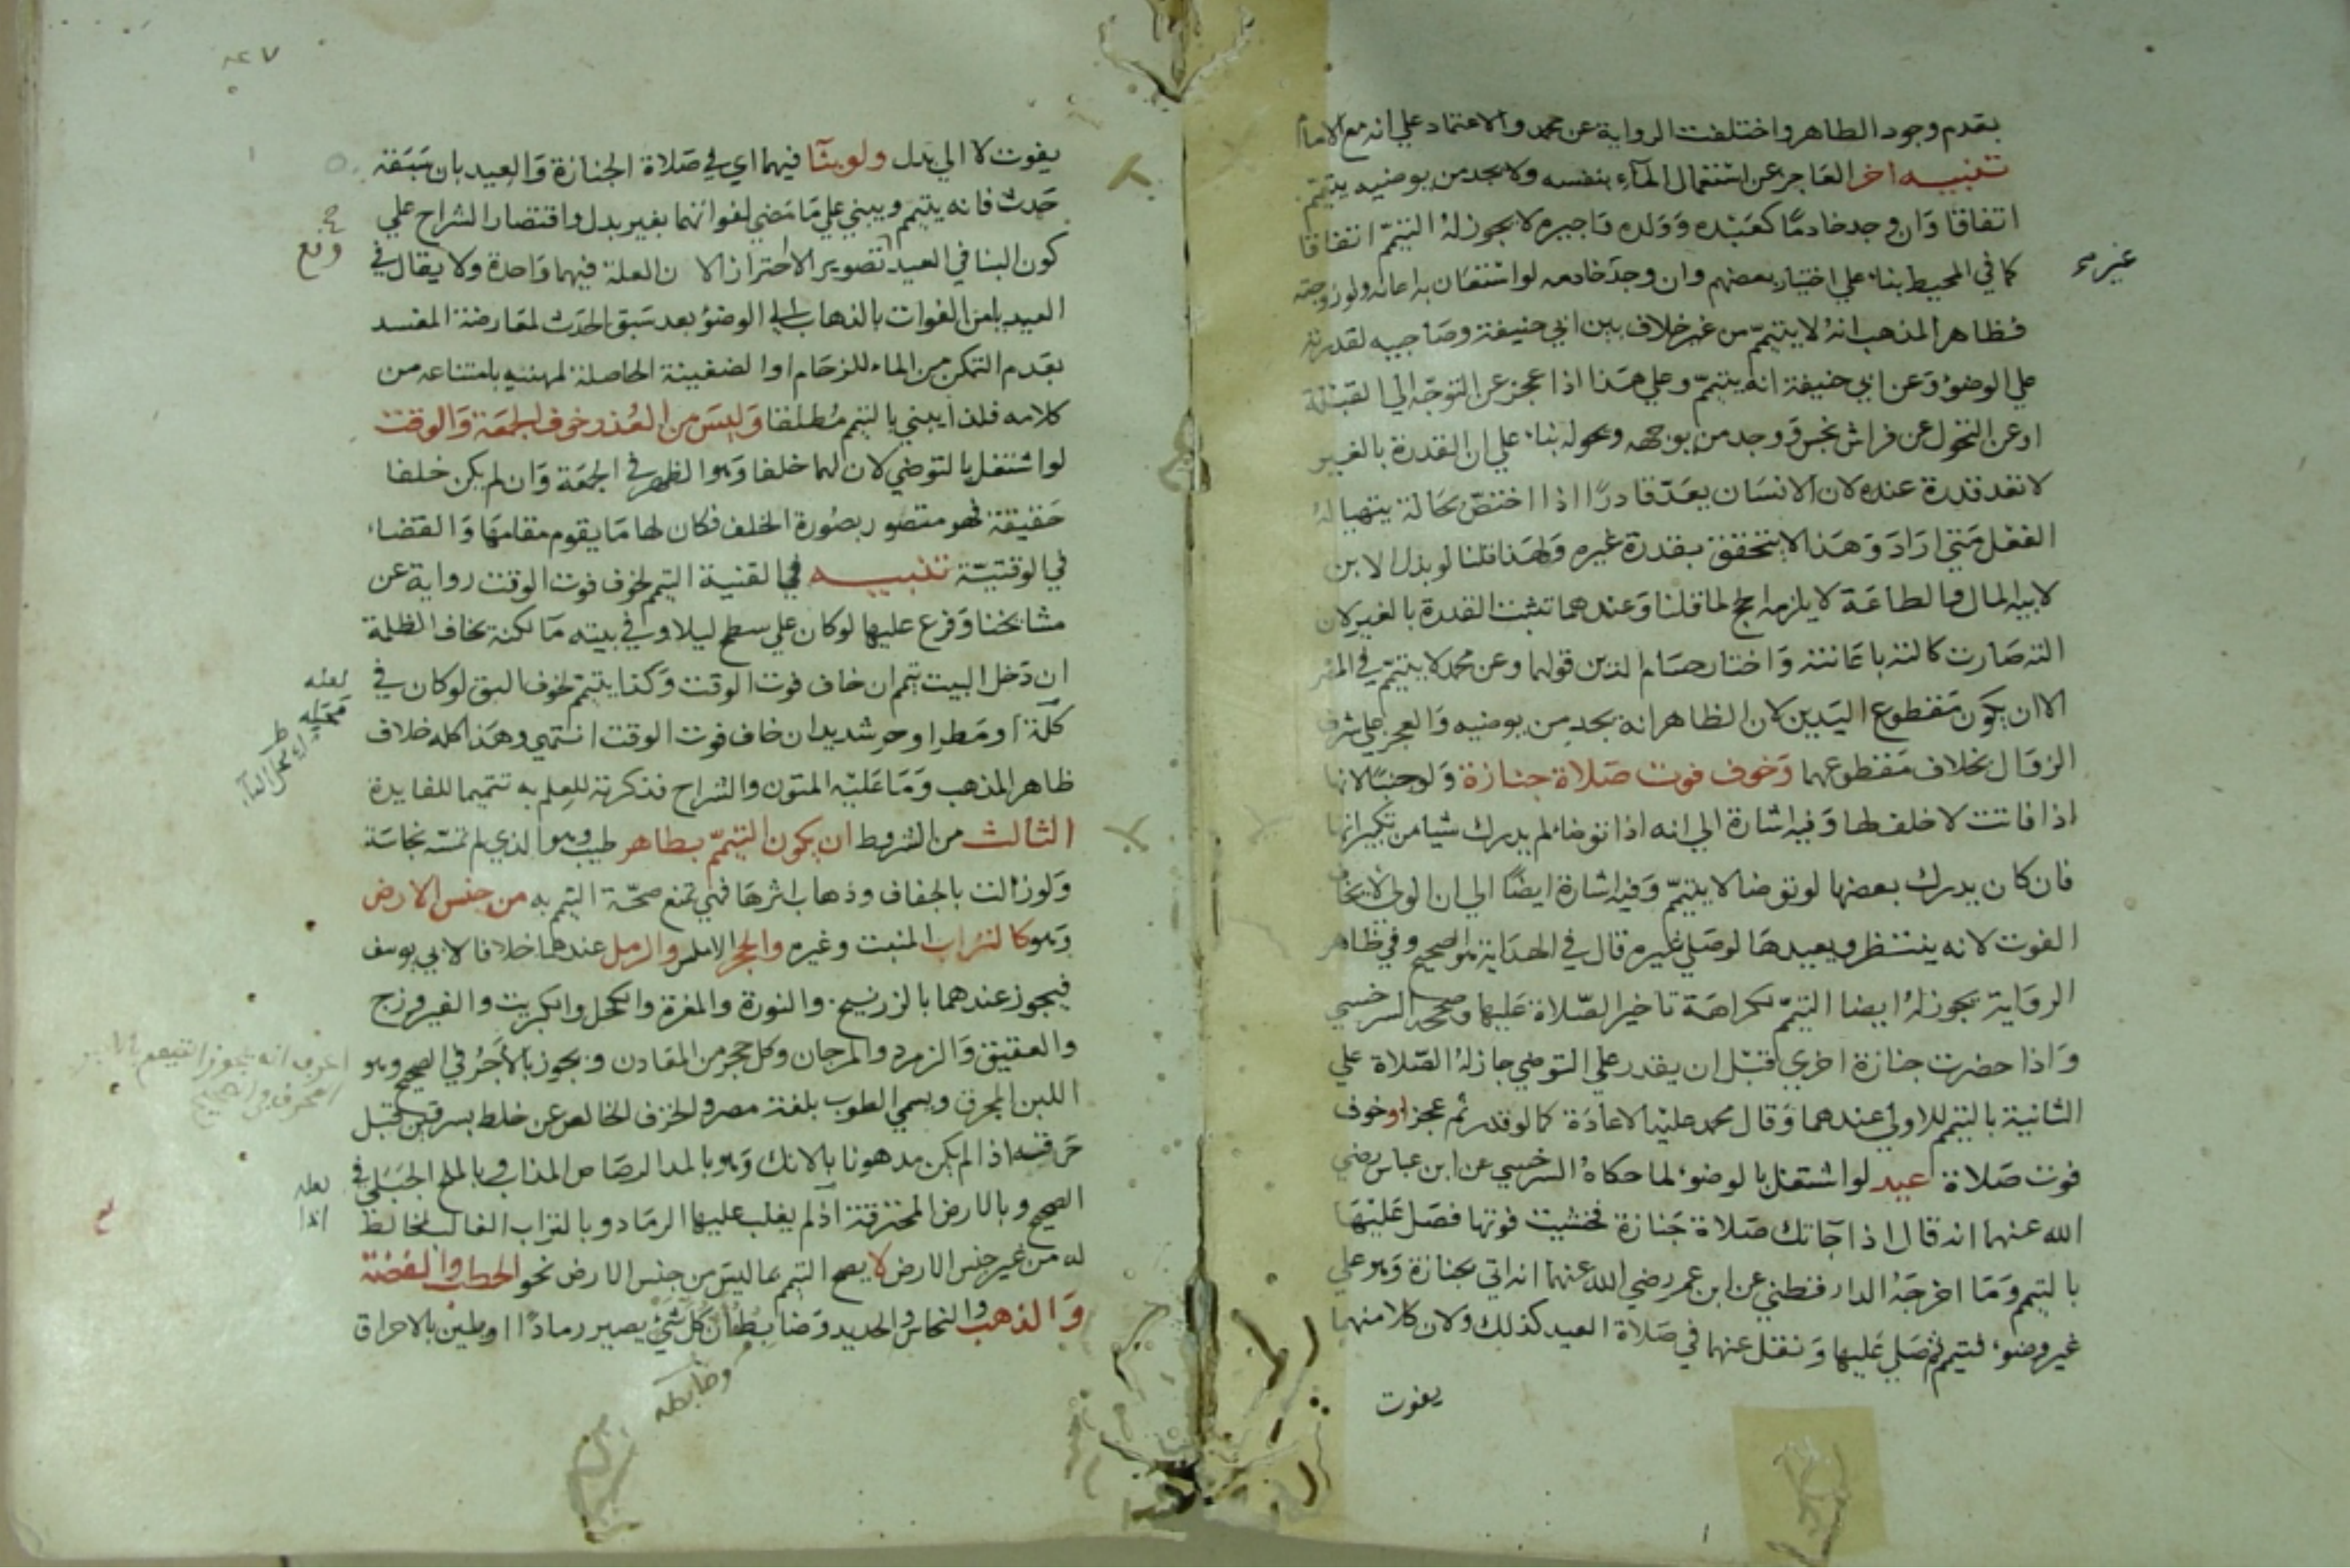 بقدم وجود الطاهر واختلفت الرواية عن محمد والاعتماد علي انه مع الامام
تنبيه اخر العاجز عن استعمال المآء بنفسه ولا يجد من يوضيه يتيمم
اتفاقا وان وجد خادما كعبده وولده واجيره لا يجوز له التيمم اتفاقا
كما في المحيط بناء علي اختيار بعضهم وان وجد خادمه لو استعان به اعانه ولو زوجته
غير م
فظاهر المذهب انه لا يتيمم من غير خلاف بين ابي حنيفة وصاحبيه لقدرته
علي الوضوء وعن ابي حنيفة انه يتيمم وعلي هذا اذا عجز عن التوجه الي القبلة
او عن التحول عن فراش نجس ووجد من يوجهه ويحوله بناء علي ان القدرة بالغير
لا تعد قدرة عنده لان الانسان يعد قادرا اذا اختص بحالة يتهيا له
الفعل متي اراد وهذا لا يتحقق بقدرة غيره ولهذا قلنا لو بذل الابن
لابيه المال والطاعة لا يلزمه الحج لما قلنا وعندهما تثبت القدرة بالغير لان
الته صارت كالته باعانته واختار حسام الدين قولهما وعن محمد لا يتيمم في المصر
الا ان يكون مقطوع اليدين لان الظاهر انه يجد من يوضيه والعجز علي شرف
الزوال بخلاف مقطوعهما وخوف فوت صلاة جنازة ولو جنبا لانها
اذا فاتت لا خلف لها وفيه اشارة الي انه اذا توضا لم يدرك شيا من تكبيراتها
فان كان يدرك بعضها لو توضا لا يتيمم وفيه اشارة ايضا الي ان الولي لا يخاف
الفوت لانه ينتظر ويعيدها لو صلي غيره قال في الهداية هو الصحيح وفي ظاهر
الرواية يجوز له ايضا التيمم لكراهة تاخير الصلاة عليها وصححه السرخسي
واذا حضرت جنازة اخري قبل ان يقدر علي التوضي جاز له الصلاة علي
الثانية بالتيمم للاولي عندهما وقال محمد عليه الاعادة كما لو قدر ثم عجز او خوف
فوت صلاة عيد لو اشتغل بالوضوء لما حكاه السرخسي عن ابن عباس رضي
الله عنهما انه قال اذا جآتك صلاة جنازة فخشيت فوتها فصل عليها
بالتيمم وما اخرجه الدارقطني عن ابن عمر رضي الله عنهما انه اتي بجنازة وهو علي
غير وضوء فتيمم ثم صلي عليها ونقل عنهما في صلاة العيد كذلك ولان كلا منهما
يفوت
يفوت لا الي بدل ولو بنآ فيهما اي في صلاة الجنازة والعيد بان سبقه
حدث فانه يتيمم ويبني علي ما مضي لفواتهما بغير بدل واقتصار الشراح علي
كون البنا في العيد تصوير الاحتراز الا ن العلة فيهما واحدة ولا يقال في
العيد يامن الفوات بالذهاب الي الوضوء بعد سبق الحدث لمعارضة المفسد
بعدم التمكن من الماء للزحام او الضغينة الحاصلة لمهنيه بامتناعه من
كلامه فلذا يبني بالتيمم مطلقا وليس من العذر خوف الجمعة والوقت
لو اشتغل بالتوضي لان لهما خلفا وهو الظهر في الجمعة وان لم يكن خلفا
حقيقة فهو متصور بصورة الخلف فكان لها ما يقوم مقامها والقضاء
في الوقتية تنبيه في القنية التيمم لخوف فوت الوقت رواية عن
مشايخنا وفرع عليها لو كان علي سطح ليلا وفي بيته مآ لكنه يخاف الظلمة
ان دخل البيت تيمم ان خاف فوت الوقت وكذا يتيمم لخوف البق لو كان في
كلة او مطر او حر شديد ان خاف فوت الوقت انتهي وهذا كله خلاف
ظاهر المذهب وما عليه المتون والشراح فذكرته للعلم به تتميما للفايدة
الثالث من الشروط ان يكون التيمم بطاهر طيب وهو الذي لم تمسه نجاسة
ولو زالت بالجفاف وذهاب اثرها فهي تمنع صحة التيمم به من جنس الارض
وهو كالتراب المنبت وغيره والحجر الاملس والرمل عندهما خلافا لابي يوسف
فيجوز عندهما بالزرنيخ والنورة والمغرة والكحل والكبريت والفيروزج
والعقيق والزمرد والمرجان وكل حجر من المعادن ويجوز بالآجر في الصحيح وهو
اللبن المحرق ويسمي الطوب بلغة مصر والخزف الخالص عن خلط بسرقين قبل
حرقه اذا لم يكن مدهونا بالانك وهو بالمد الرصاص المذاب وبالملح الجبلي في
الصحيح وبالارض المحترقة اذ لم يغلب عليها الرماد وبالتراب الغالب لمخالط
له من غير جنس الارض لا يصح التيمم بما ليس من جنس الارض نحو الحطب والفضة
والذهب والنحاس والحديد وضابط ان كل شيء يصير رمادا او يلين بالاحراق
لعله
لعله
اذا
وضابطه